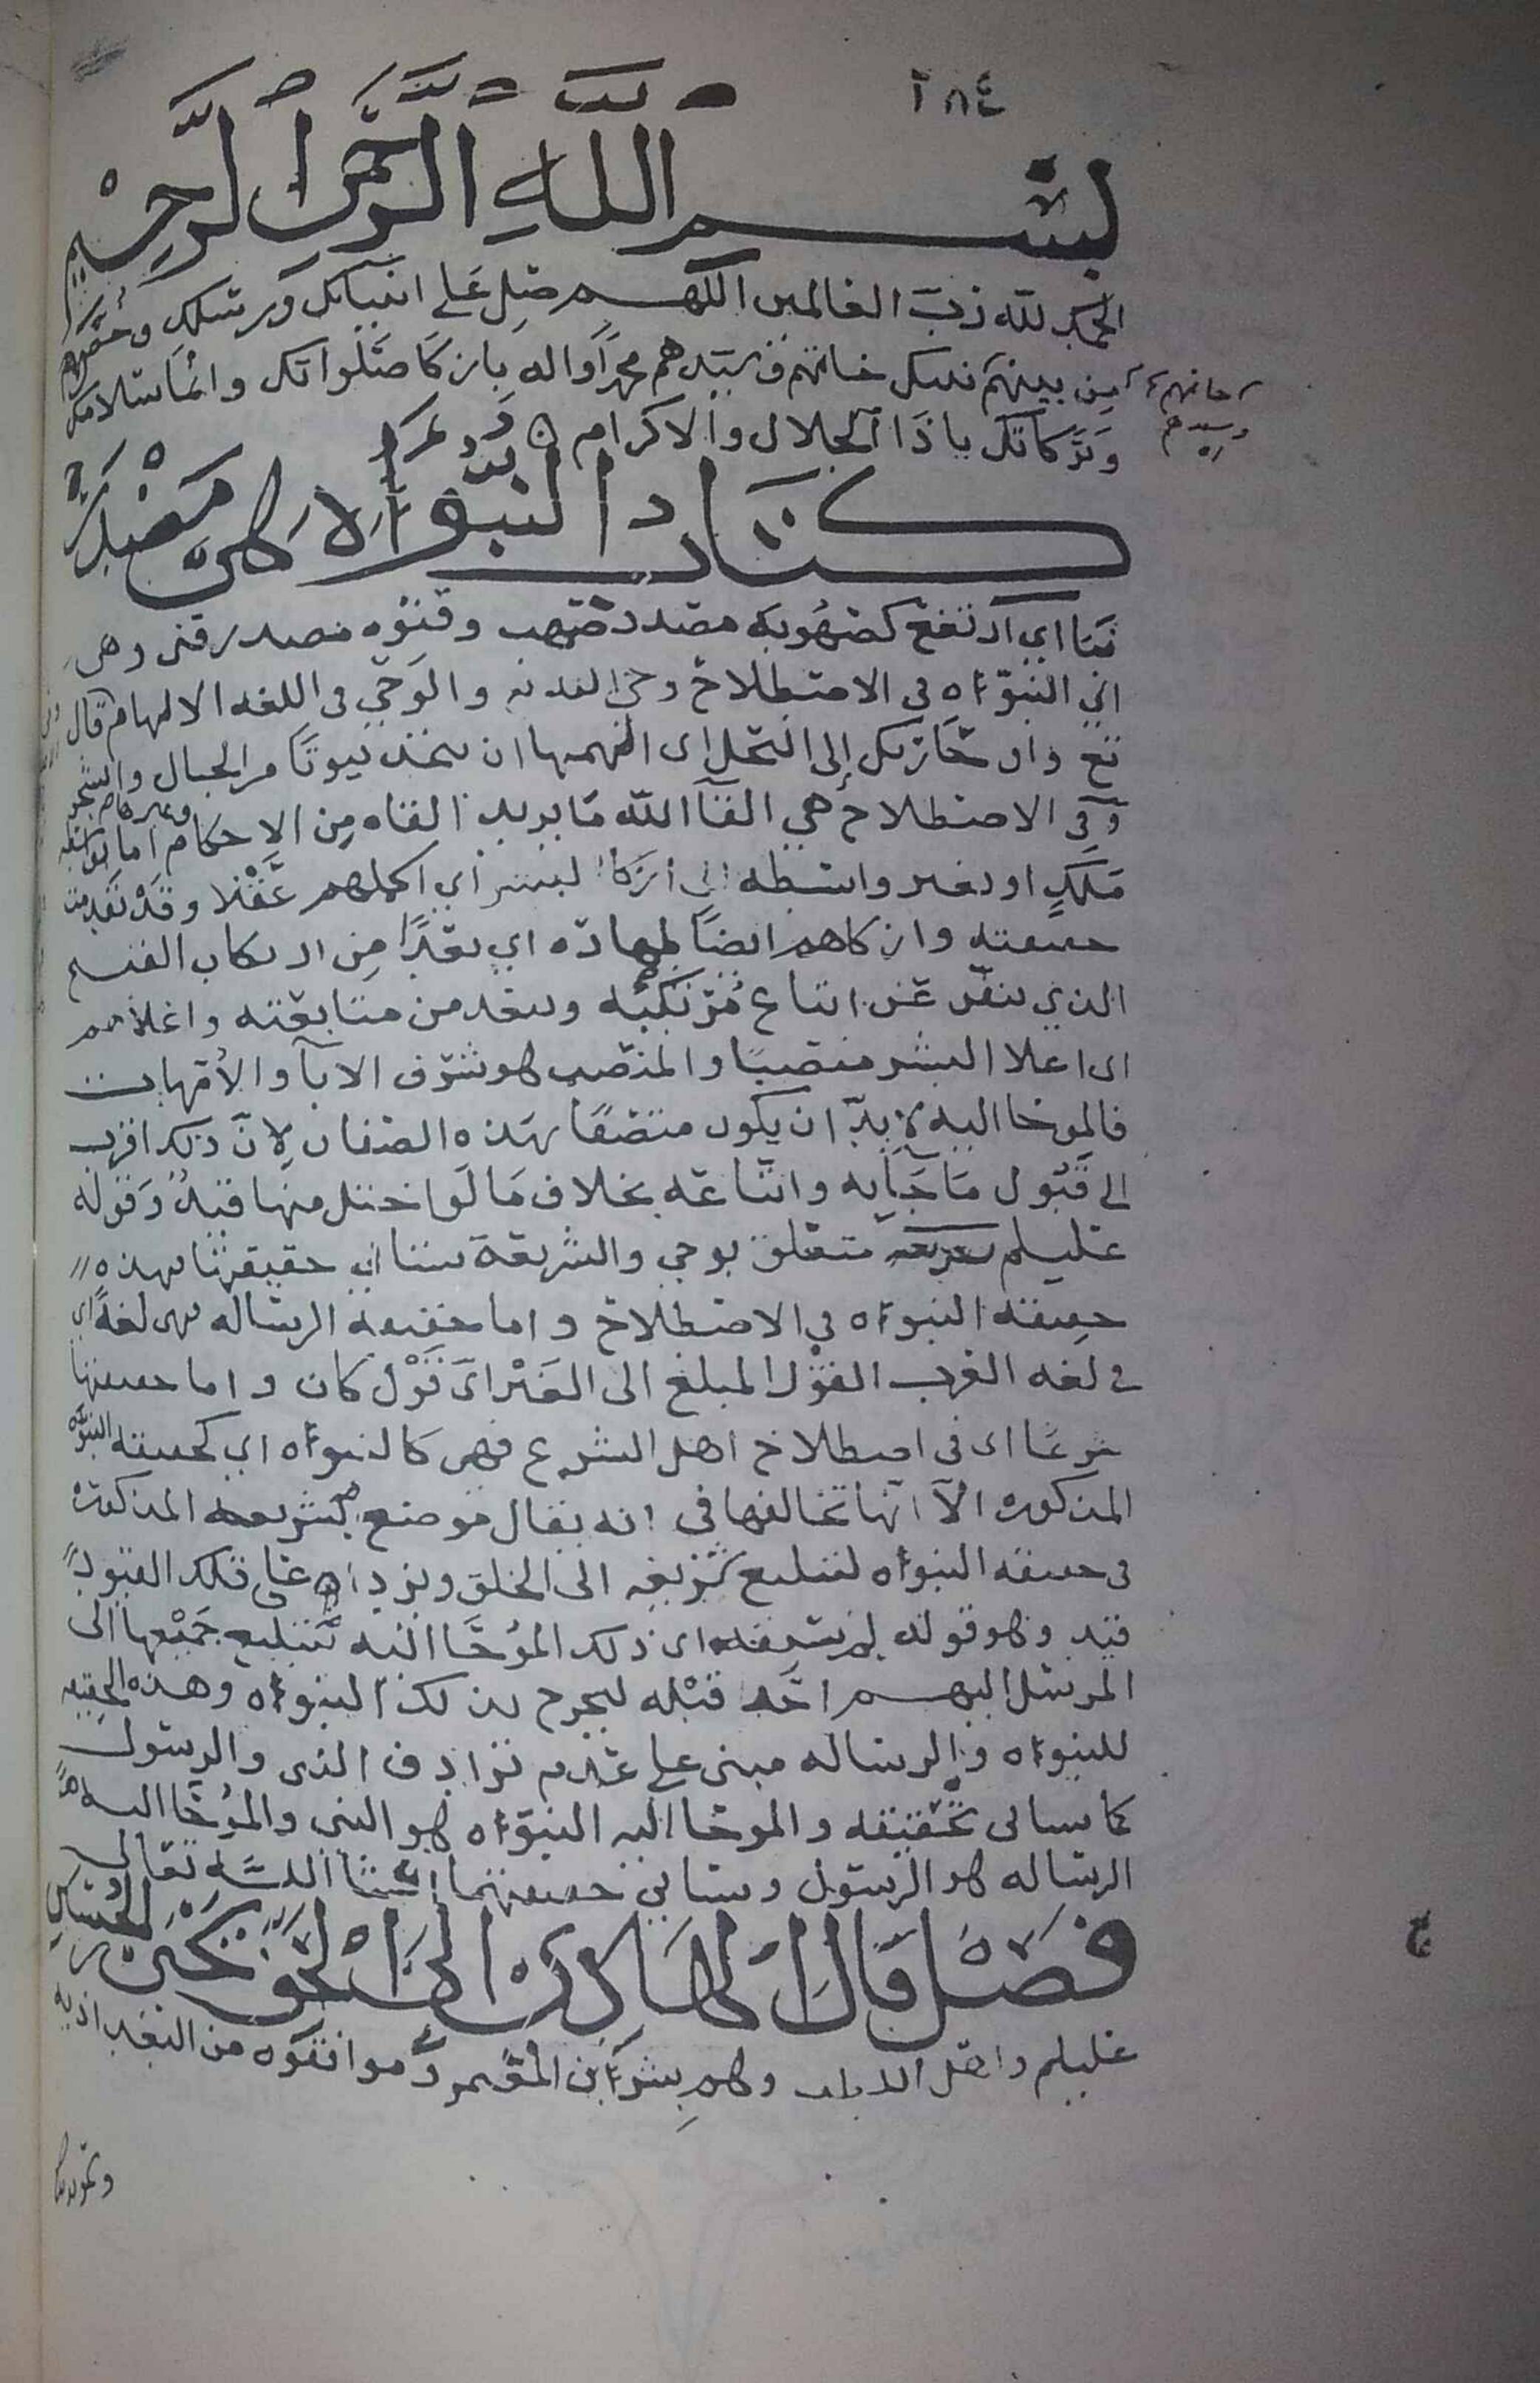 ٢٨٤
بسم الله الرحمن الرحيم
الحمد لله رب العالمين اللهم صل على انبيائك ورسلك وخص
من بينهم بذلك خاتمهم وسيدهم محمدا واله بازكا صلواتك وانما سلامك
خاتمهم
وسيدهم
وبركاتك ياذا الجلال والاكرام
كتاب النبوءاة هي مصدر
نبا اي ارتفع كصهوبة مصدر صهب وقنوه مصدر قنى وهي
اي النبوءاه في الاصطلاح وحي الله والوحي في اللغه الالهام قال
تع واوحا ربك إلى النحل اى الهمها ان تتخذ بيوتا من الجبال والشجر
وفي الاصطلاح هي القآ الله ما يريد القاه من الاحكام اما بواسطه
ملك او بغير واسطه الى ازكا البشر أي اكملهم عقلا وقد تقدمت
حقيقته وازكاهم ايضا طهاره اي بعدا من ارتكاب القبيح
الذي ينفر عن اتباع مرتكبه ويبعد من متابعته واعلاهم
اى اعلا البشر منصبا والمنصب هو شرف الابآ والأمهات
فالموحا اليه لا بد ان يكون متصفا بهذه الصفات لان ذلك اقرب
الى قبول ما جا به واتباعه بخلاف ما لو اختل منها قيد وقوله
عليلم بشريعه متعلق بوحي والشريعة ستاتي حقيقتها فهذه
حقيقة النبوءاه في الاصطلاح واما حقيقة الرساله فهى لغة اي
في لغه العرب القول المبلغ الى الغير اي قول كان واما حقيقتها
شرعا اى في اصطلاح اهل الشرع فهي كالنبوءاه اي كحقيقة النبوه
المذكوره الا انها تخالفها في انه يقال موضع بشريعه المذكوره
في حقيقه النبوءاه لتبليغ شريعه الى الخلق ويزداد على تلك القيود
قيد وهو قوله لم يسبقه اى ذلك الموحا اليه بتبليغ جميعها الى
المرسل اليهم احد قبله ليخرج بذلك النبوءاه وهذه الحقيقه
للنبوءاه والرساله مبنى على عدم ترادف النبى والرسول
كما سياتى تحقيقه والموحا اليه النبوءاه هو النبي والموحا اليه
الرساله هو الرسول وستاتي حقيقتهما إنشا الله تعالى
فصل قال الهادي الى الحق يحيى بن الحسين
عليلم واهل اللطف وهم بشر بن المعتمر وموافقوه من البغداديه